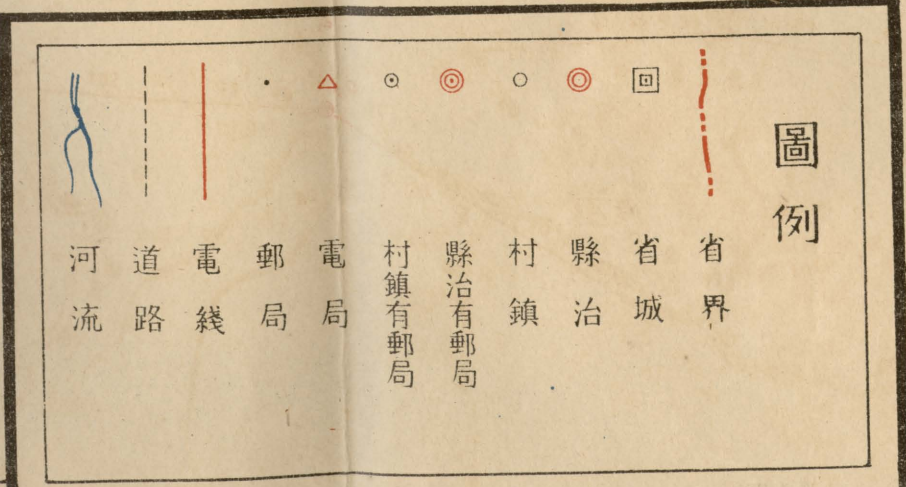 圖例
省界
省城
縣治
村鎮
縣治有郵局
村鎮有郵局
電局
郵局
電綫
道路
河流